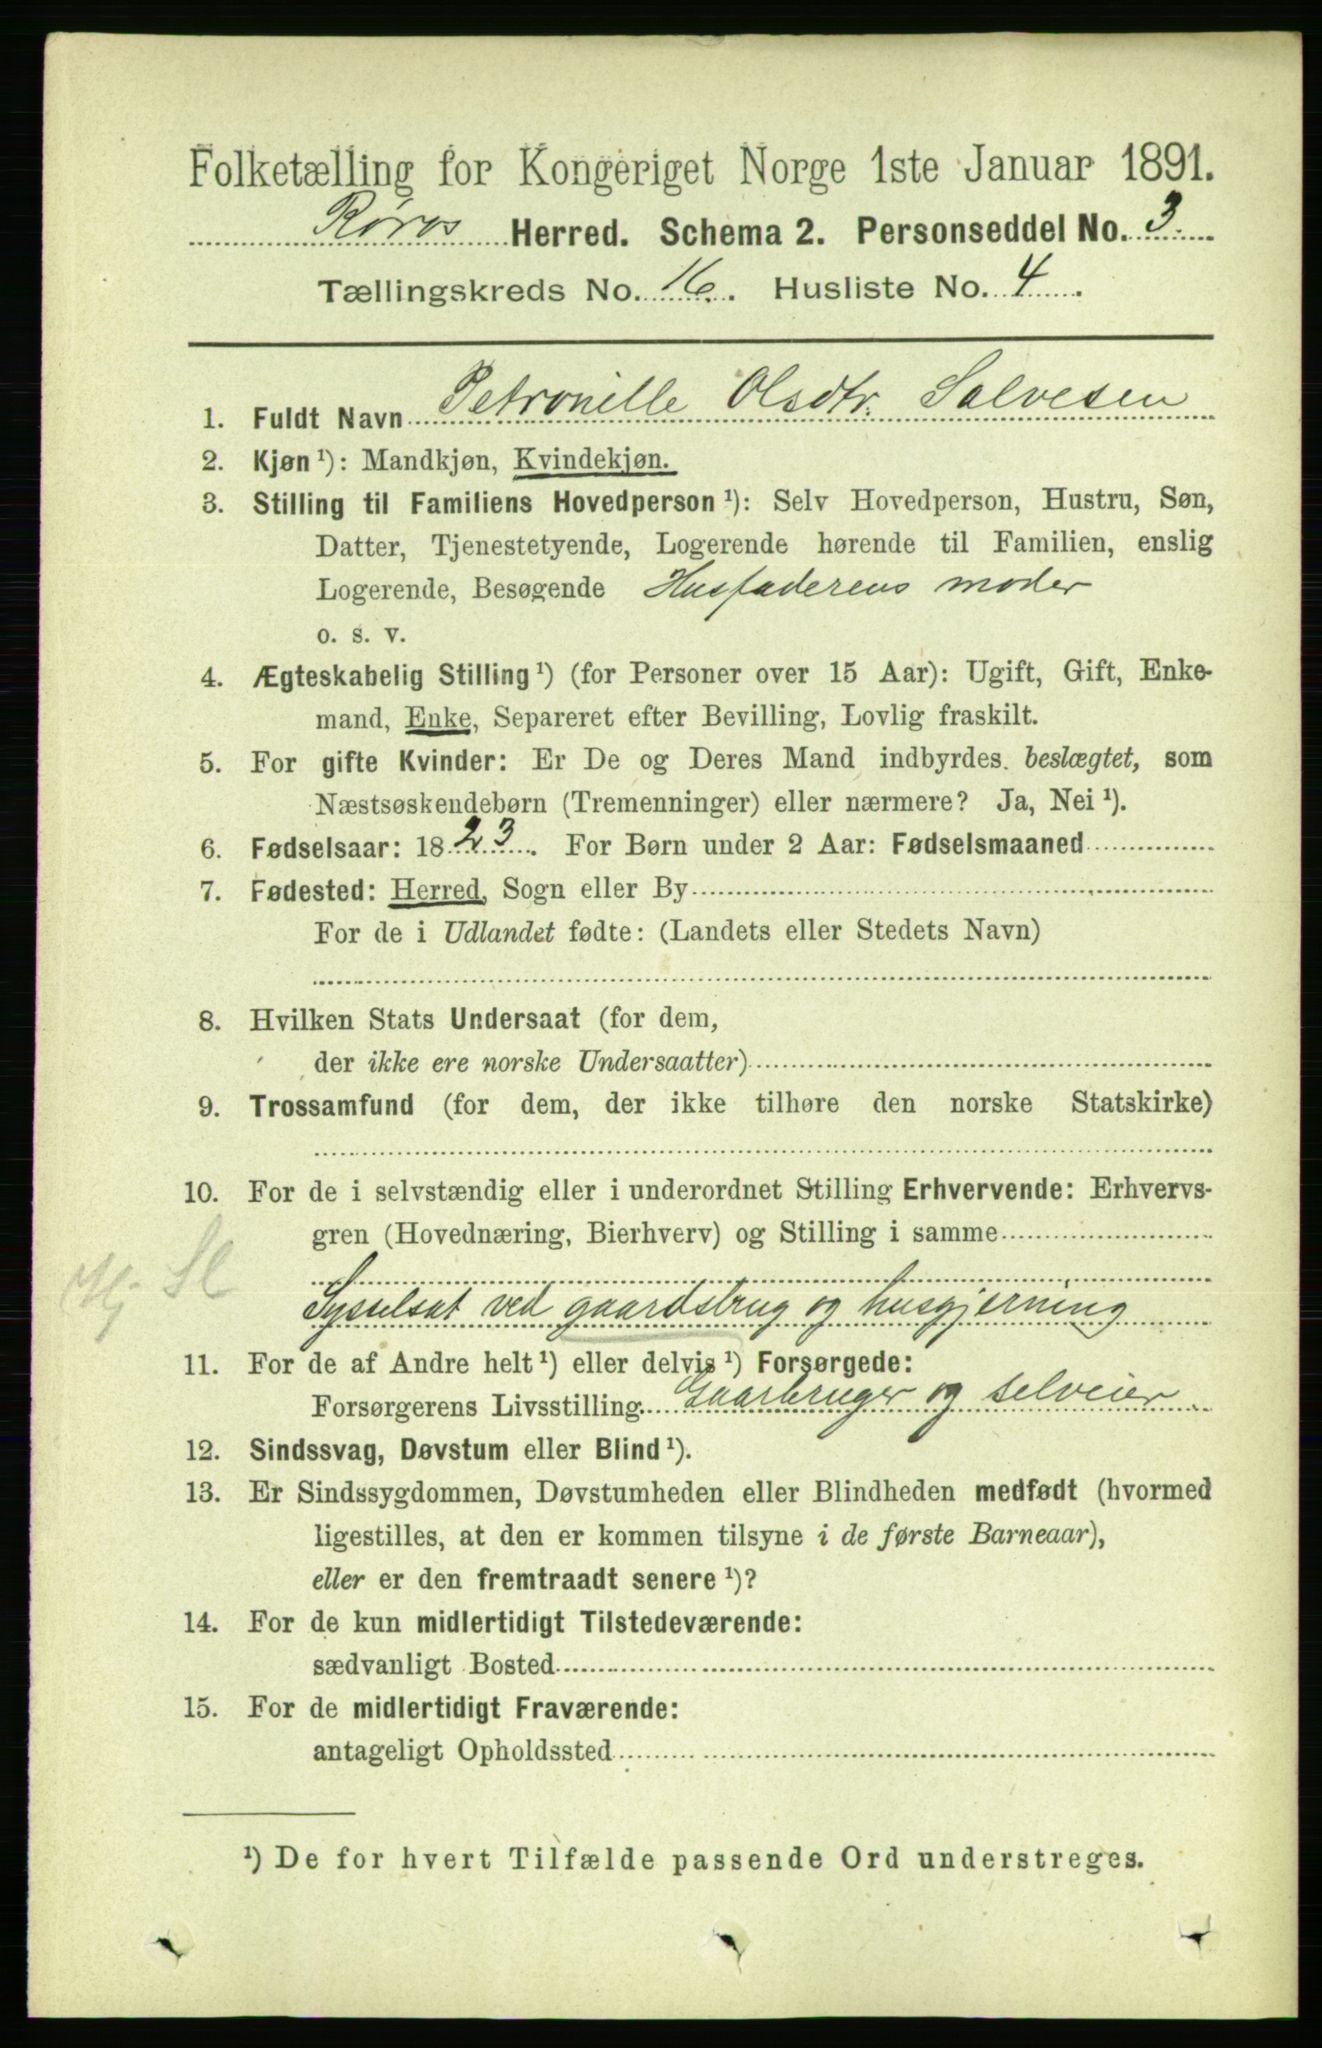 Folketælling for Kongeriget Norge 1ste Januar 1891.
Røros Herred. Schema 2. Personseddel No. 3.
Tællingskreds No. 16. Husliste No. 4.
1. Fuldt Navn Petronille Olsdtr. Salvesen
2. Kjøn ¹): Mandkjøn, Kvindekjøn.
3. Stilling til Familiens Hovedperson ¹): Selv Hovedperson, Hustru, Søn,
Datter, Tjenestetyende, Logerende hørende til Familien, enslig
Logerende, Besøgende Husfaderens moder
o. s. v.
4. Ægteskabelig Stilling ¹) (for Personer over 15 Aar): Ugift, Gift, Enke-
mand, Enke, Separeret efter Bevilling, Lovlig fraskilt.
5. For gifte Kvinder: Er De og Deres Mand indbyrdes beslægtet, som
Næstsøskendebørn (Tremenninger) eller nærmere? Ja, Nei ¹).
6. Fødselsaar: 1823. For Børn under 2 Aar: Fødselsmaaned
7. Fødested: Herred, Sogn eller By
For de i Udlandet fødte: (Landets eller Stedets Navn)
8. Hvilken Stats Undersaat (for dem,
der ikke ere norske Undersaatter)
9. Trossamfund (for dem, der ikke tilhøre den norske Statskirke)
10. For de i selvstændig eller i underordnet Stilling Erhvervende: Erhvervs-
gren (Hovednæring, Bierhverv) og Stilling i samme
Hj. Sl
Sysselsat ved gaardsbrug og husgjerning
11. For de af Andre helt ¹) eller delvis ¹) Forsørgede:
Forsørgerens Livsstilling Gaarbruger og selveier
12. Sindssvag, Døvstum eller Blind ¹).
13. Er Sindssygdommen, Døvstumheden eller Blindheden medfødt (hvormed
ligestilles, at den er kommen tilsyne i de første Barneaar),
eller er den fremtraadt senere ¹)?
14. For de kun midlertidigt Tilstedeværende:
sædvanligt Bosted
15. For de midlertidigt Fraværende:
antageligt Opholdssted
¹) De for hvert Tilfælde passende Ord understreges.